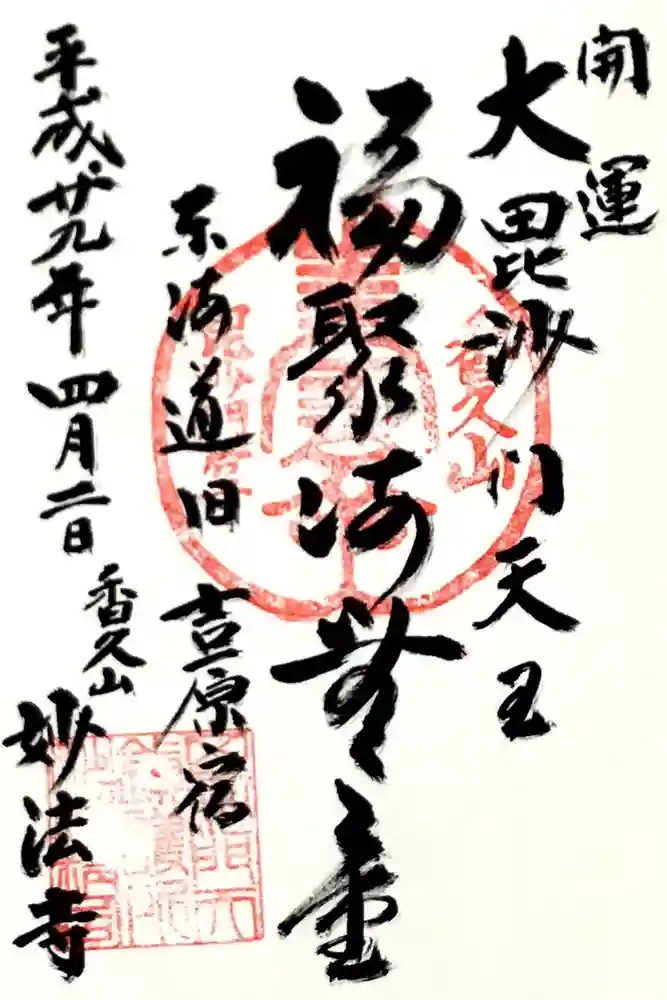 開運
大毘沙門天王
福聚海無量
東海道旧 吉原宿
平成廿九年四月二日
香久山
妙法寺
香久山